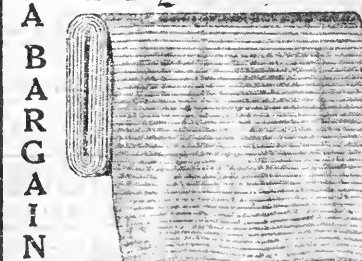 A BARGAIN